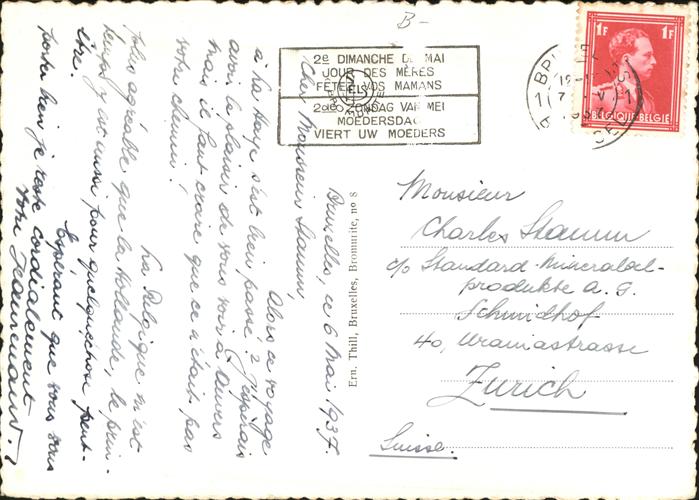 B-
2e DIMANCHE DE MAI
JOUR DES MÈRES
FÊTEZ VOS MAMANS
2de ZONDAG VAN MEI
MOEDERSDAG
VIERT UW MOEDERS
1F 1F
BELGIQUE·BELGIE
Bruxelles, ce 6 Mai 1937.
Cher Monsieur Stamm,
Alors ce voyage
à la Haye s'est bien passé? J'espérais
avoir le plaisir de vous voir à Anvers
mais il faut croire que ce n'était pas
votre chemin!
La Belgique n'est
plus agréable que la Hollande, le prin-
temps y est aussi pour quelquechose peut-
être.
Espérant que vous vous
portez bien je reste cordialement
votre
Ern. Thill, Bruxelles, Bromurite, no 8
Monsieur
Charles Stamm
c/o Standard-Mineraloel-
produkte A.G.
Schmidhof
40, Uraniastrasse
Zurich
Suisse.